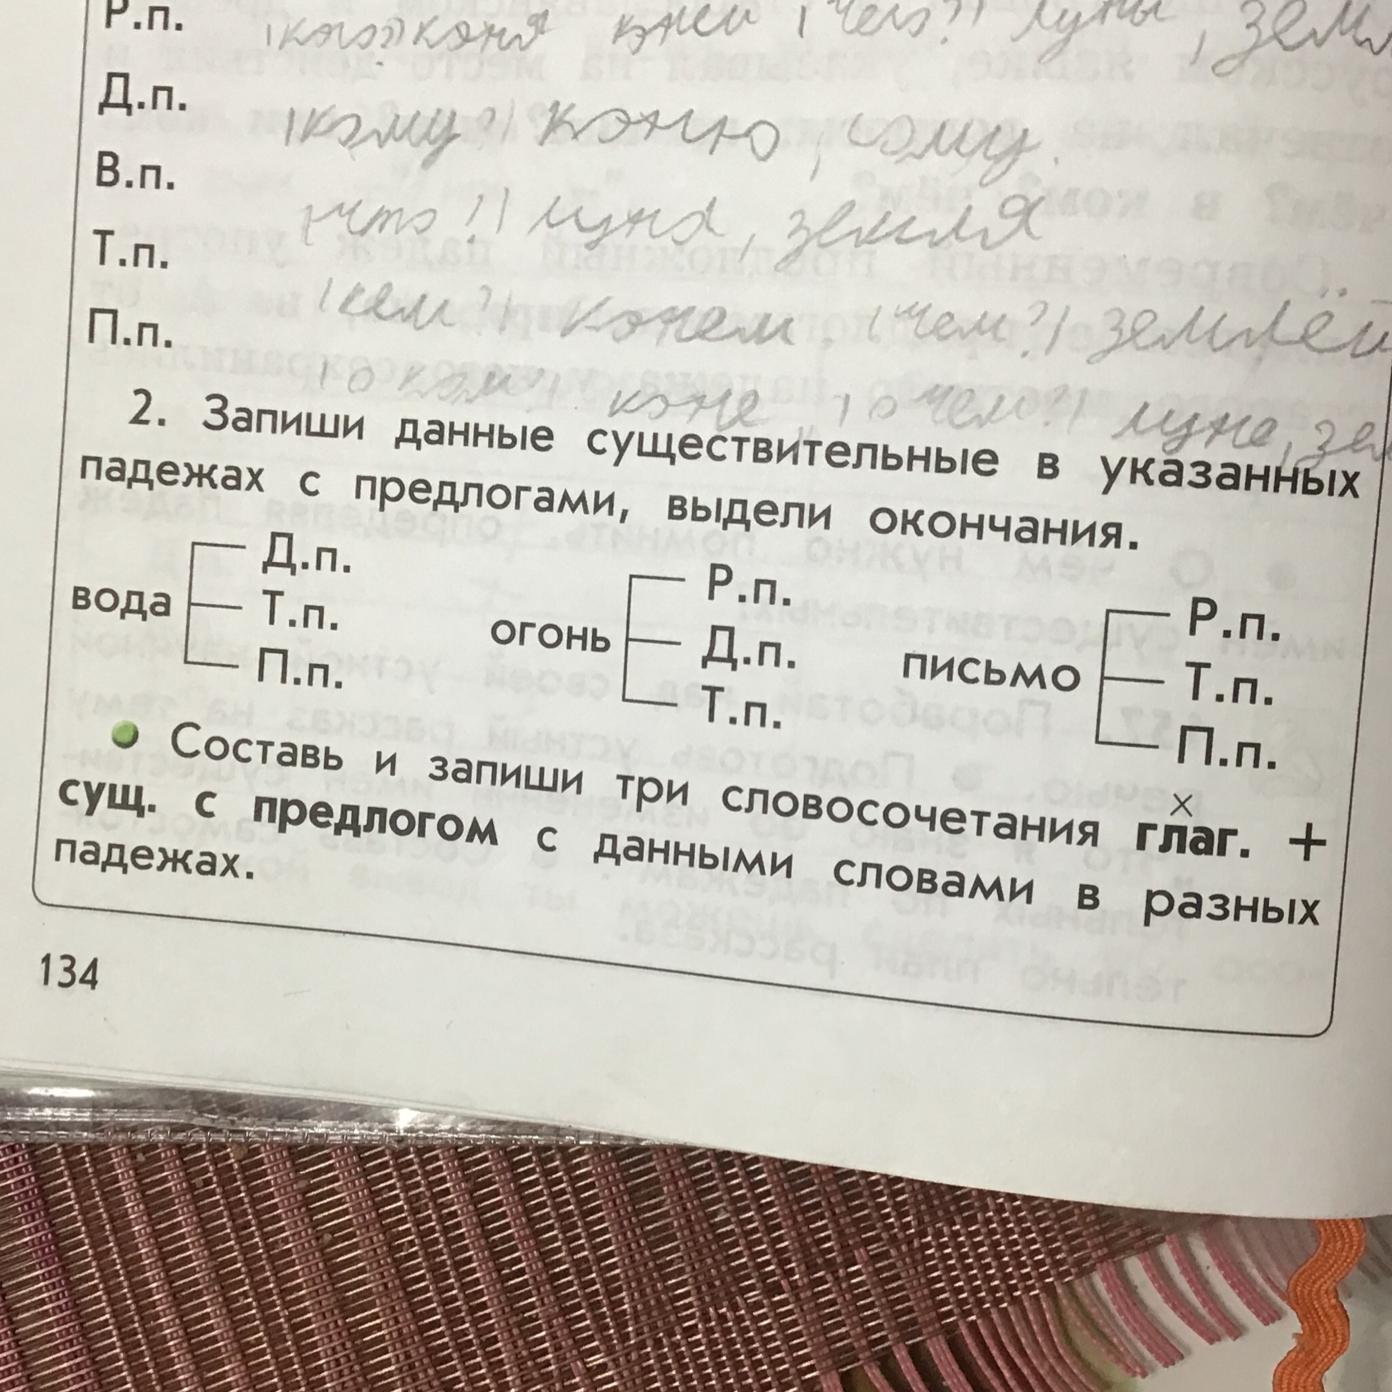 Р.п. коня чего? луны,
Д.п. (кому?) коню,
В.п.
(что?) луна, земля
Т.п.
(кем?) конем, (чем?) землей
П.п.
о ком коне, (о чем?) луне, зем
2. Запиши данные существительные в указанных
падежах с предлогами, выдели окончания.
вода Д.п. Т.п. П.п.
огонь Р.п. Д.п. Т.п.
письмо Р.п. Т.п. П.п.
Составь и запиши три словосочетания глаг. +
сущ. с предлогом с данными словами в разных
падежах.
134